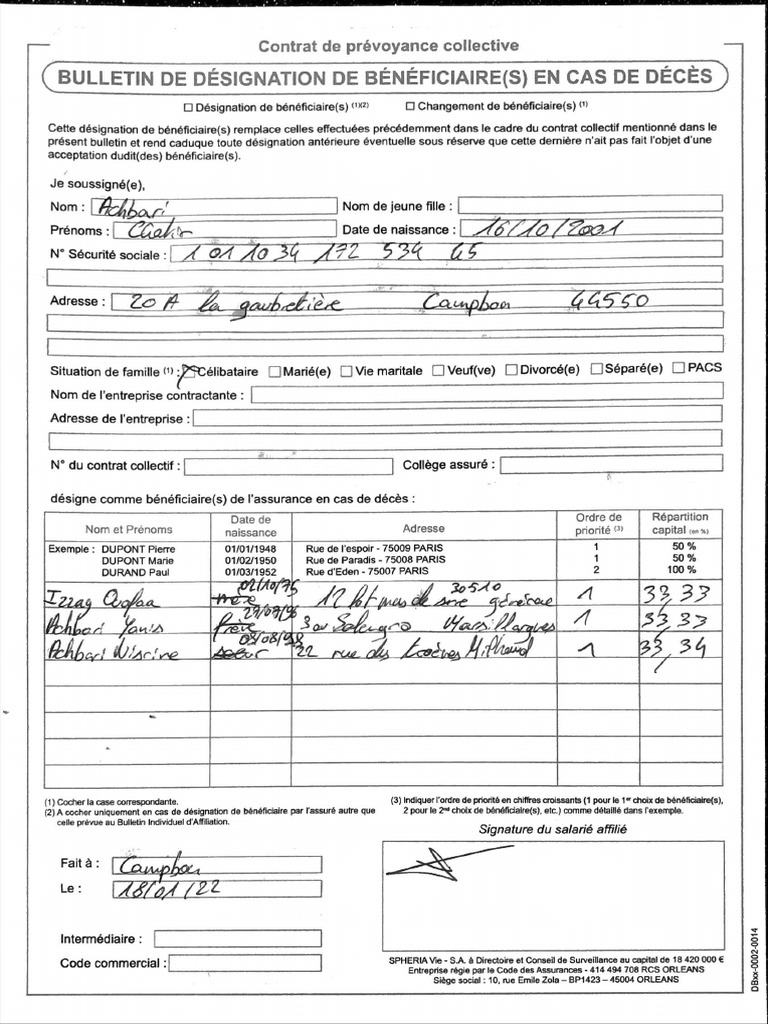 Contrat de prévoyance collective
BULLETIN DE DÉSIGNATION DE BÉNÉFICIAIRE(S) EN CAS DE DÉCÈS
☐ Désignation de bénéficiaire(s) (1)(2) ☐ Changement de bénéficiaire(s) (1)
Cette désignation de bénéficiaire(s) remplace celles effectuées précédemment dans le cadre du contrat collectif mentionné dans le
présent bulletin et rend caduque toute désignation antérieure éventuelle sous réserve que cette dernière n'ait pas fait l'objet d'une
acceptation dudit(des) bénéficiaire(s).
Je soussigné(e),
Nom : Achbari Nom de jeune fille :
Prénoms : Date de naissance : 16/10/2001
N° Sécurité sociale : 1 01 10 34 172 534 45
Adresse : 20 A la gaubretière Campbon 44550
Situation de famille (1) : ☒ Célibataire ☐ Marié(e) ☐ Vie maritale ☐ Veuf(ve) ☐ Divorcé(e) ☐ Séparé(e) ☐ PACS
Nom de l'entreprise contractante :
Adresse de l'entreprise :
N° du contrat collectif : Collège assuré :
désigne comme bénéficiaire(s) de l'assurance en cas de décès :
Nom et Prénoms Date de naissance Adresse Ordre de priorité (3) Répartition capital (en %)
Exemple : DUPONT Pierre 01/01/1948 Rue de l'espoir - 75009 PARIS 1 50 %
DUPONT Marie 01/02/1950 Rue de Paradis - 75008 PARIS 1 50 %
DURAND Paul 01/03/1952 Rue d'Eden - 75007 PARIS 2 100 %
02/10/75 30510
12 générac 1 33,33
Achbari Yanis frère 3 Salengro Marsillargues 1 33,33
Achbari Nisrine soeur 22 rue des 1 33,34
(1) Cocher la case correspondante.
(2) A cocher uniquement en cas de désignation de bénéficiaire par l'assuré autre que
celle prévue au Bulletin Individuel d'Affiliation.
(3) Indiquer l'ordre de priorité en chiffres croissants (1 pour le 1er choix de bénéficiaire(s),
2 pour le 2nd choix de bénéficiaire(s), etc.) comme détaillé dans l'exemple.
Signature du salarié affilié
Fait à : Campbon
Le : 18/01/22
Intermédiaire :
Code commercial :
SPHERIA Vie - S.A. à Directoire et Conseil de Surveillance au capital de 18 420 000 €
Entreprise régie par le Code des Assurances - 414 494 708 RCS ORLEANS
Siège social : 10, rue Emile Zola – BP1423 – 45004 ORLEANS
DBxx-0002-0014